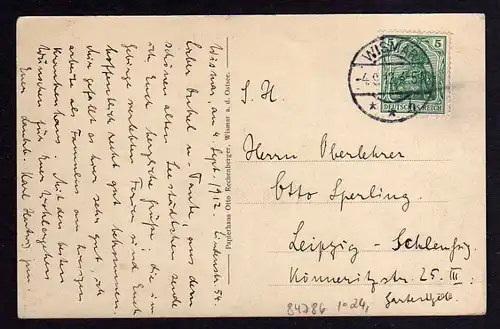 Wismar, am 4. Sept. 1912. Lindenstr. 54.
Lieber Onkel u. Tante, aus dem
schönen alten Seestädtchen sende
ich Euch herzliche Grüße; die im
Gebirge verlebten Ferien sind Euch
hoffentlich recht gut bekommen.
Mir gefällt es hier sehr gut, ich
arbeite als Famulus am hiesigen
Krankenhaus. Mit den besten
Wünschen für Euer Wohlergehen
Euer dankb. Karl Hartwig jun.
Papierhaus Otto Rechenberger, Wismar a. d. Ostsee.
WISMAR
5
DEUTSCHES REICH
S. H.
Herrn Oberlehrer
Otto Sperling
Leipzig - Schleussig
Könneritzstr. 25. III.
Gartengeb.
84786